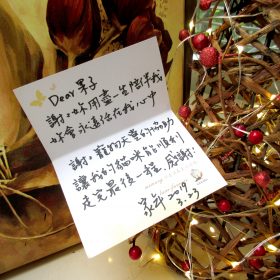 Dear 子
謝:妳用盡一生陪伴我
妳會永遠活在我心中
謝:寵物天的協助
讓我的貓咪能順利
走完最後一程. 感謝!
2019
3.23